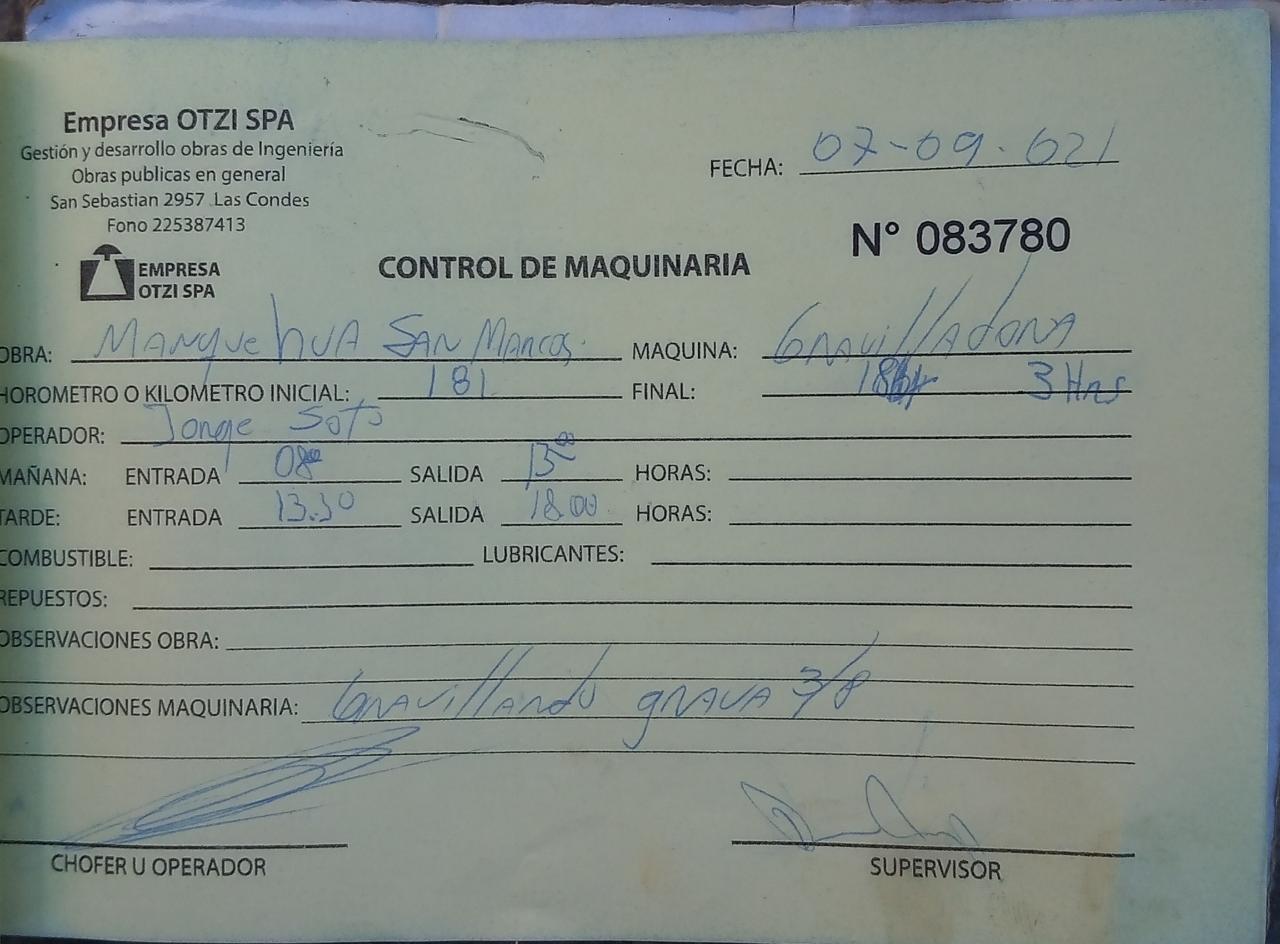 Empresa OTZI SPA
Gestión y desarrollo obras de Ingeniería
Obras publicas en general
San Sebastian 2957 Las Condes
Fono 225387413
EMPRESA
OTZI SPA
FECHA: 07-09-021
N° 083780
CONTROL DE MAQUINARIA
OBRA: Manquehua San Marcos. MAQUINA: Gravilladora
HOROMETRO O KILOMETRO INICIAL: 181 FINAL: 3 Hrs
OPERADOR: Jorge Soto
MAÑANA: ENTRADA 08:00 SALIDA 13:00 HORAS:
TARDE: ENTRADA 13.30 SALIDA 18.00 HORAS:
COMBUSTIBLE: LUBRICANTES:
REPUESTOS:
OBSERVACIONES OBRA:
OBSERVACIONES MAQUINARIA: Gravillando grava 3/8
CHOFER U OPERADOR SUPERVISOR